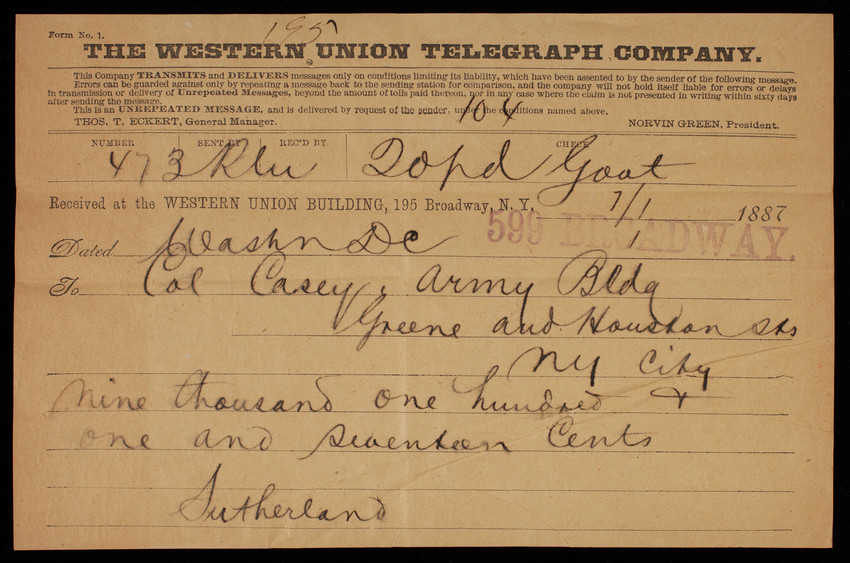 195
Form No. 1.
THE WESTERN UNION TELEGRAPH COMPANY.
This Company TRANSMITS and DELIVERS messages only on conditions limiting its liability, which have been assented to by the sender of the following message.
Errors can be guarded against only by repeating a message back to the sending station for comparison, and the company will not hold itself liable for errors or delays
in transmission or delivery of Unrepeated Messages, beyond the amount of tolls paid thereon, nor in any case where the claim is not presented in writing within sixty days
after sending the message.
This is an UNREPEATED MESSAGE, and is delivered by request of the sender, under the conditions named above.
104
THOS. T. ECKERT, General Manager. NORVIN GREEN, President.
NUMBER SENT BY REC'D BY CHECK
473 20 pd Govt
Received at the WESTERN UNION BUILDING, 195 Broadway, N. Y. 7/1 1887
599 BROADWAY.
Dated Washn DC
To Col Casey, Army Bldg
Greene and Houston Sts
NY City
nine thousand one hundred +
one and seventeen Cents
Sutherland